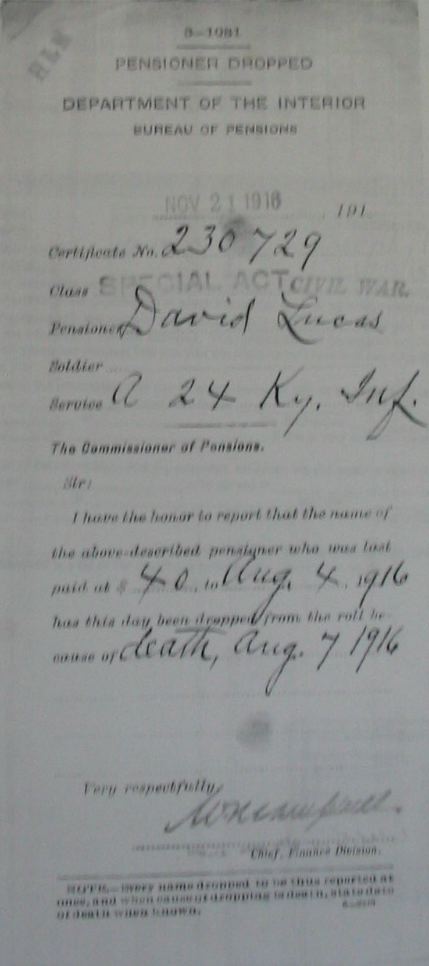 3-1081
PENSIONER DROPPED
DEPARTMENT OF THE INTERIOR
BUREAU OF PENSIONS
NOV 21 1916 , 191
Certificate No. 230729
Class SPECIAL ACT CIVIL WAR.
Pensioner David Lucas
Soldier
Service A 24 Ky. Inf.
The Commissioner of Pensions.
Sir:
I have the honor to report that the name of
the above-described pensioner who was last
paid at $ 40, to Aug. 4, 1916
has this day been dropped from the roll be-
cause of death, Aug. 7 1916
Very respectfully,
Chief, Finance Division.
NOTE.—Every name dropped to be thus reported at
once, and when cause of dropping is death, state date
of death when known.